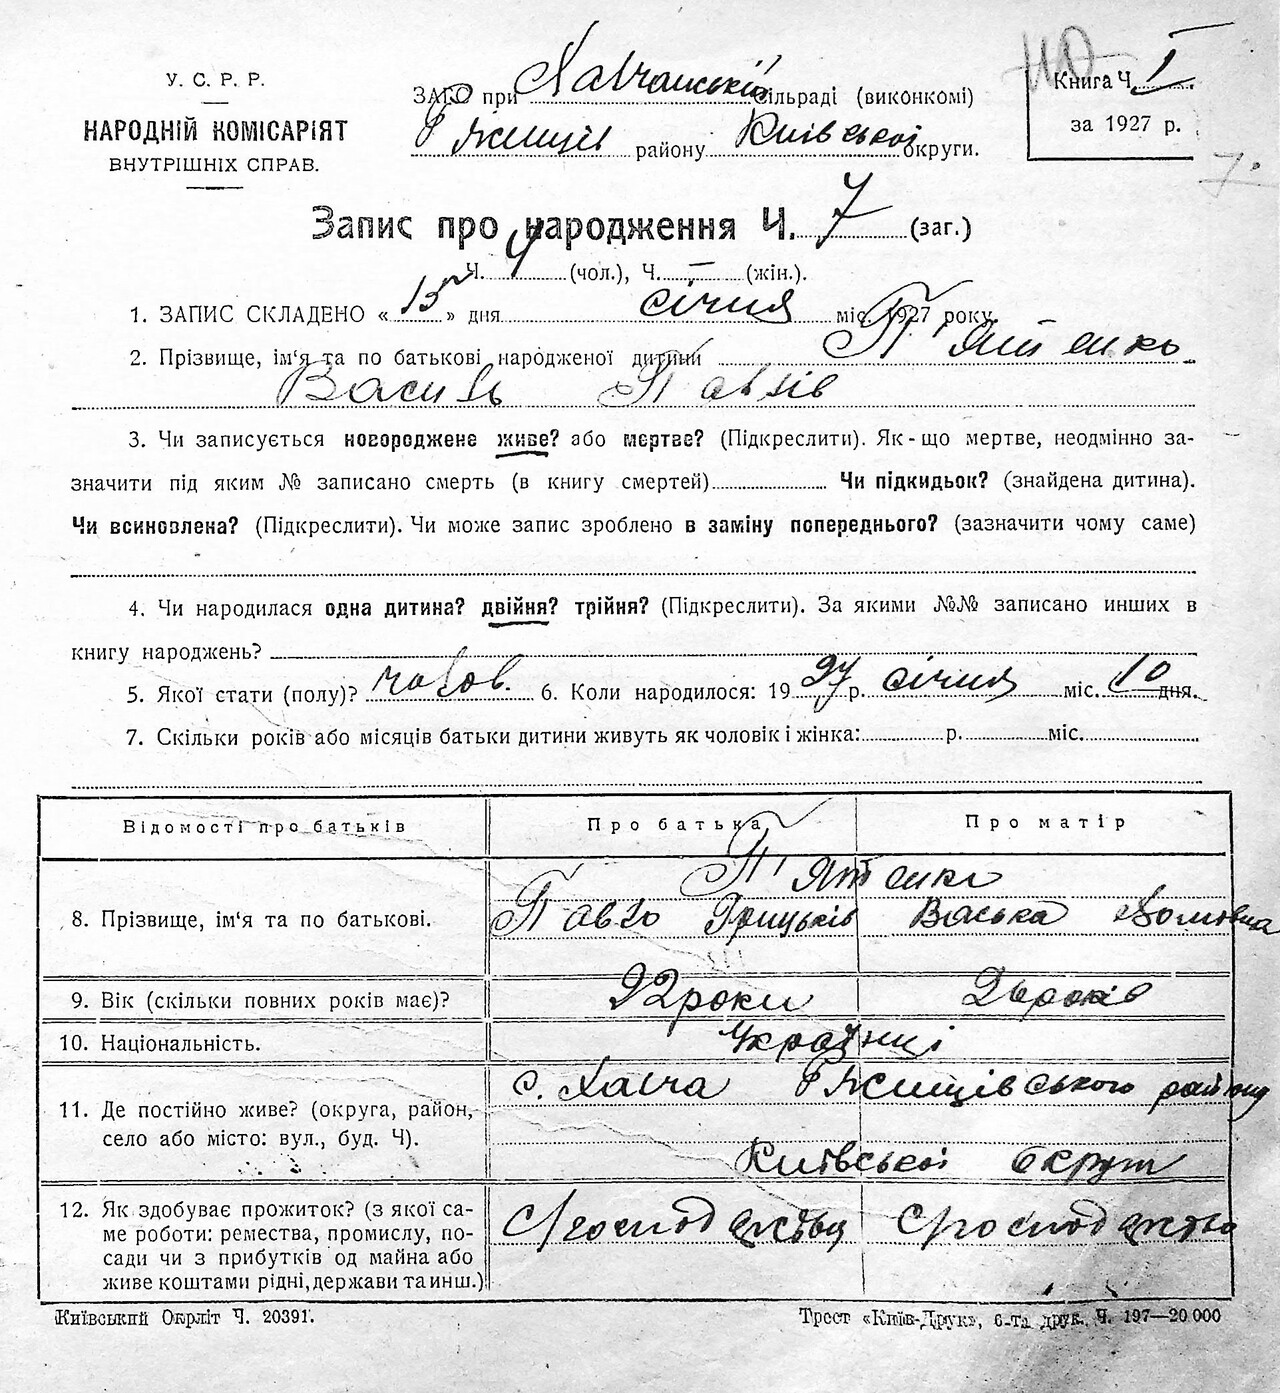 У. С. Р. Р.
НАРОДНІЙ КОМІСАРІЯТ
ВНУТРІШНІХ СПРАВ.
ЗАГС при Халчанській сільраді (виконкомі)
Ржищів району Київської округи.
Книга Ч. I
за 1927 р.
7.
Запис про народження Ч. 7 (заг.)
Ч. 4 (чол.), Ч. – (жін.).
1. ЗАПИС СКЛАДЕНО « 15 » дня січня міс. 1927 року
2. Прізвище, ім'я та по батькові народженої дитини П'ятенко
Василь Павлів
3. Чи записується новороджене живе? або мертве? (Підкреслити). Як-що мертве, неодмінно за-
значити під яким № записано смерть (в книгу смертей) Чи підкидьок? (знайдена дитина).
Чи всиновлена? (Підкреслити). Чи може запис зроблено в заміну попереднього? (зазначити чому саме)
4. Чи народилася одна дитина? двійня? трійня? (Підкреслити). За якими №№ записано инших в
книгу народжень?
5. Якої стати (полу)? чолов. 6. Коли народилося: 1927 р. січня міс. 10 дня.
7. Скільки років або місяців батьки дитини живуть як чоловік і жінка: р. міс.
Відомості про батьків Про батька Про матір
П'ятенко
8. Прізвище, ім'я та по батькові. Павло Грицьків Васька
9. Вік (скільки повних років має)? 22 роки років
10. Національність. Українці
11. Де постійно живе? (округа, район, село або місто: вул., буд. Ч). с. Халча Ржищівського району
Київської округи
12. Як здобуває прожиток? (з якої са-
ме роботи: ремества, промислу, по-
сади чи з прибутків од майна або
живе коштами рідні, держави та инш.)
Київський Окрліт Ч. 20391.
Трест «Київ-Друк», 6-та друк. Ч. 197—20 000